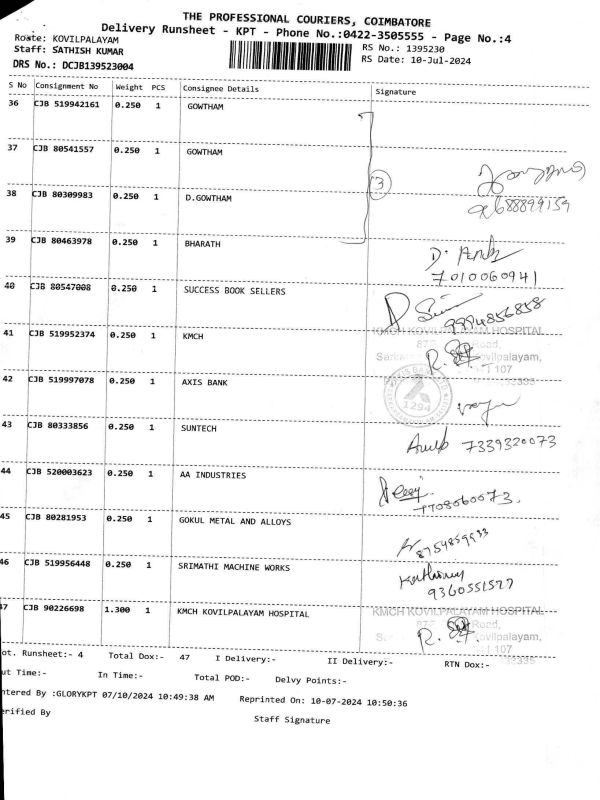 THE PROFESSIONAL COURIERS, COIMBATORE
Delivery Runsheet - KPT - Phone No.:0422-3505555 - Page No.:4
Route: KOVILPALAYAM
RS No.: 1395230
Staff: SATHISH KUMAR
RS Date: 10-Jul-2024
DRS No.: DCJB139523004
S No Consignment No Weight PCS Consignee Details Signature
36 CJB 519942161 0.250 1 GOWTHAM
37 CJB 80541557 0.250 1 GOWTHAM
3
38 CJB 80309983 0.250 1 D.GOWTHAM
39 CJB 80463978 0.250 1 BHARATH
7010060941
40 CJB 80547008 0.250 1 SUCCESS BOOK SELLERS
9994856858
41 CJB 519952374 0.250 1 KMCH
KMCH KOVILPALAYAM HOSPITAL
Road,
Kovilpalayam,
107
42 CJB 519997078 0.250 1 AXIS BANK
AXIS BANK
1294
43 CJB 80333856 0.250 1 SUNTECH
7339320073
44 CJB 520003623 0.250 1 AA INDUSTRIES
7708060073.
45 CJB 80281953 0.250 1 GOKUL METAL AND ALLOYS
46 CJB 519956448 0.250 1 SRIMATHI MACHINE WORKS
47 CJB 90226698 1.300 1 KMCH KOVILPALAYAM HOSPITAL
KMCH KOVILPALAYAM HOSPITAL
Road,
Kovilpalayam,
107
ot. Runsheet:- 4 Total Dox:- 47 I Delivery:- II Delivery:- RTN Dox:-
ut Time:- In Time:- Total POD:- Delvy Points:-
ntered By :GLORYKPT 07/10/2024 10:49:38 AM Reprinted On: 10-07-2024 10:50:36
erified By
Staff Signature